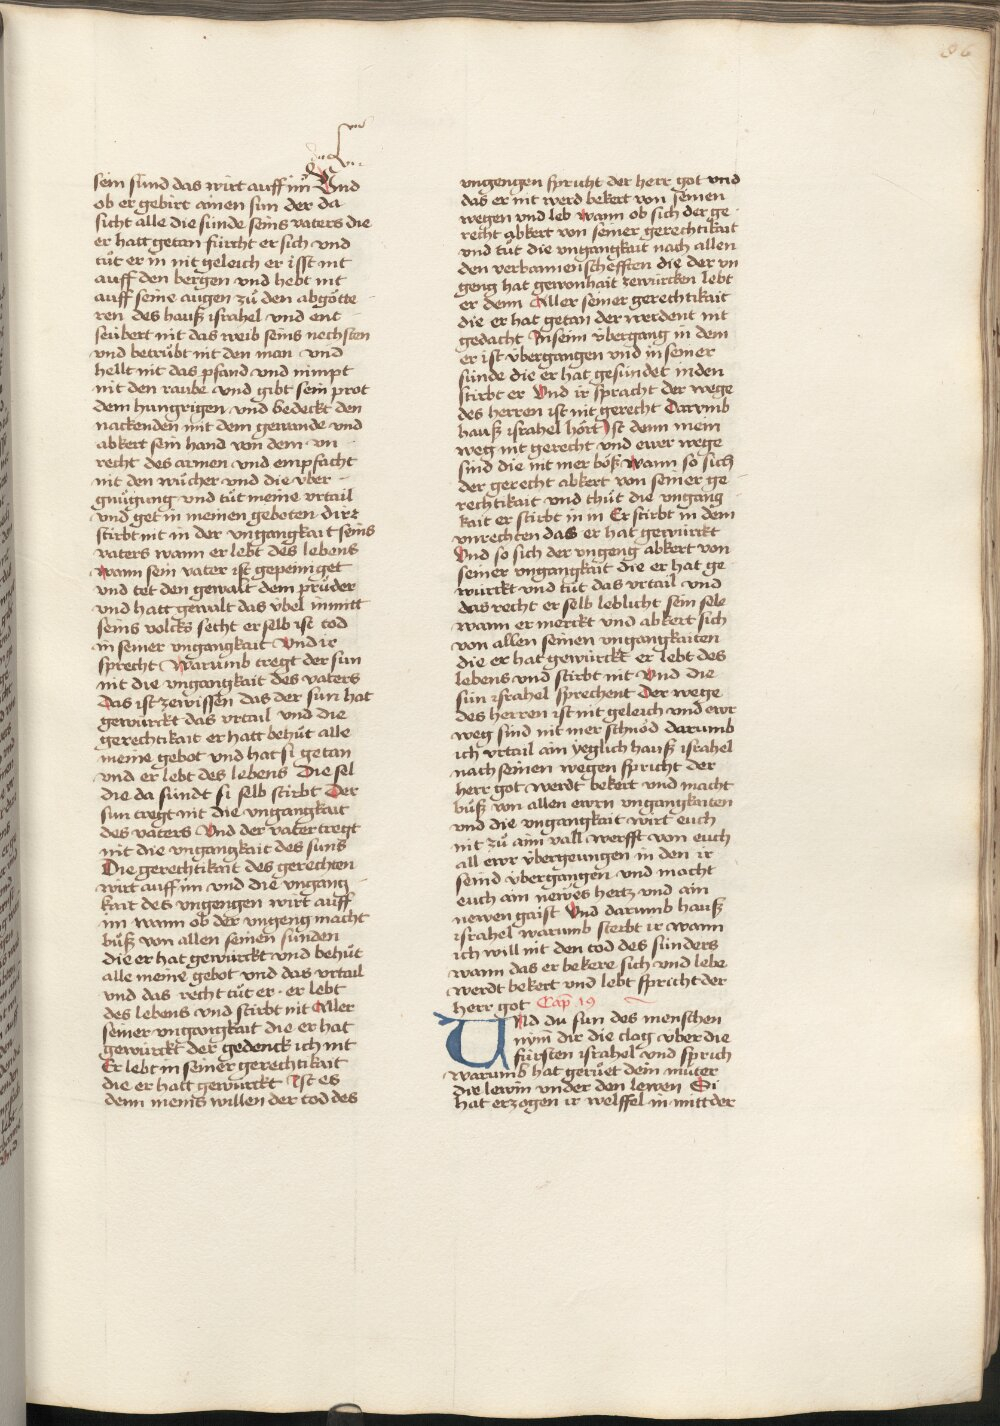 86
sein sünd das wirt auff im Vnd
ob er gebirt ainen sun der da
sicht alle die sünde seins vaters die
er hatt getan fürcht er sich vnd
tüt er in nit geleich er ißt nit
auff den bergen vnd hebt nit
auff seine augen zů den abgötte
ren des hauß israhel vnd ent
seübert nit das weib seins nechsten
vnd betrübt nit den man vnd
hellt nit das pfand vnd nimpt
nit den raube vnd gibt sein prot
dem hungrigen vnd bedeckt den
nackenden mit dem gewande vnd
abkert sein hand von dem vn
recht des armen vnd empfacht
nit den wůcher vnd die vber
gnügung vnd tüt meine vrtail
vnd get in meinen geboten dirz
stirbt nit in der vngangkait seins
vaters wann er lebt des lebens
wann sein vater ist gepeiniget
vnd tet den gewalt dem prüder
vnd hatt gewalt das vbel inmitt
seins volcks secht er selb ist tod
in seiner vngangkait Vnd ir
sprecht Warumb tregt der sun
nit die vngangkait des vaters
Das ist zewissen das der sun hat
gewürckt das vrtail vnd die
gerechtikait er hatt behüt alle
meine gebot vnd hat si getan
vnd er lebt des lebens Die sel
die da sündt si selb stirbt Der
sun tregt nit die vngangkait
des vaters Vnd der vater tregt
nit die vngangkait des suns
Die gerechtikait des gerechten
wirt auff im vnd die vngang
kait des vngengen wirt auff
im wann ob der vngeng macht
büß von allen seinen sünden
die er hat gewürckt vnd behüt
alle meine gebot vnd das vrtail
vnd das recht tüt er er lebt
des lebens vnd stirbt nit Aller
seiner vngangkait die er hat
gewürckt der gedenck ich nit
Er lebt in seiner gerechtikait
die er hatt gewürckt Ist es
denn meins willen der tod des
vngengen spricht der herr got vnd
das er nit werd bekert von seinen
wegen vnd leb wann ob sich der ge
recht abkert von seiner gerechtikait
vnd tüt die vngangkait nach allen
den verbannen schefften die der vn
geng hat gewonhait zewürcken lebt
er denn Aller seiner gerechtikait
die er hat getan der werdent nit
gedacht In seim vbergang in dem
er ist vbergangen vnd in seiner
sünde die er hat gesündet in den
stirbt er Vnd ir spracht der wege
des herren ist nit gerecht Darumb
hauß israhel hört Ist denn mein
weg nit gerecht vnd ewer wege
sind die nit mer böß wann so sich
der gerecht abkert von seiner ge
rechtikait vnd thüt die vngang
kait er stirbt in in Er stirbt in dem
vnrechten das er hat gewürckt
Vnd so sich der vngeng abkert von
seiner vngangkait die er hat ge
würckt vnd tüt das vrtail vnd
das recht er selb leblicht sein sele
wann er merckt vnd abkert sich
von allen seinen vngangkaiten
die er hat gewürckt er lebt des
lebens vnd stirbt nit Vnd die
sün israhel sprechent Der wege
des herren ist nit geleich vnd ewr
weg sind nit mer schnöd darumb
ich vrtail ain yeglich hauß israhel
nach seinen wegen spricht der
herr got werdt bekert vnd macht
büß von allen ewrn vngangkaiten
vnd die vngangkait wirt euch
nit zů aim vall werfft von euch
all ewr vbergeungen in den ir
seind vbergangen vnd macht
euch ain newes hertz vnd ain
newen gaist Vnd darumb hauß
israhel warumb sterbt ir wann
ich will nit den tod des sünders
wann das er bekere sich vnd lebe
werdt bekert vnd lebt spricht der
herr got Cap 19
Vnd du sun des menschen
nym dir die clag vber die
fürsten israhel vnd sprich
warumb hat gerüet dein můter
die lewin vnder den lewen Si
hat erzogen ir welffel in mitt der